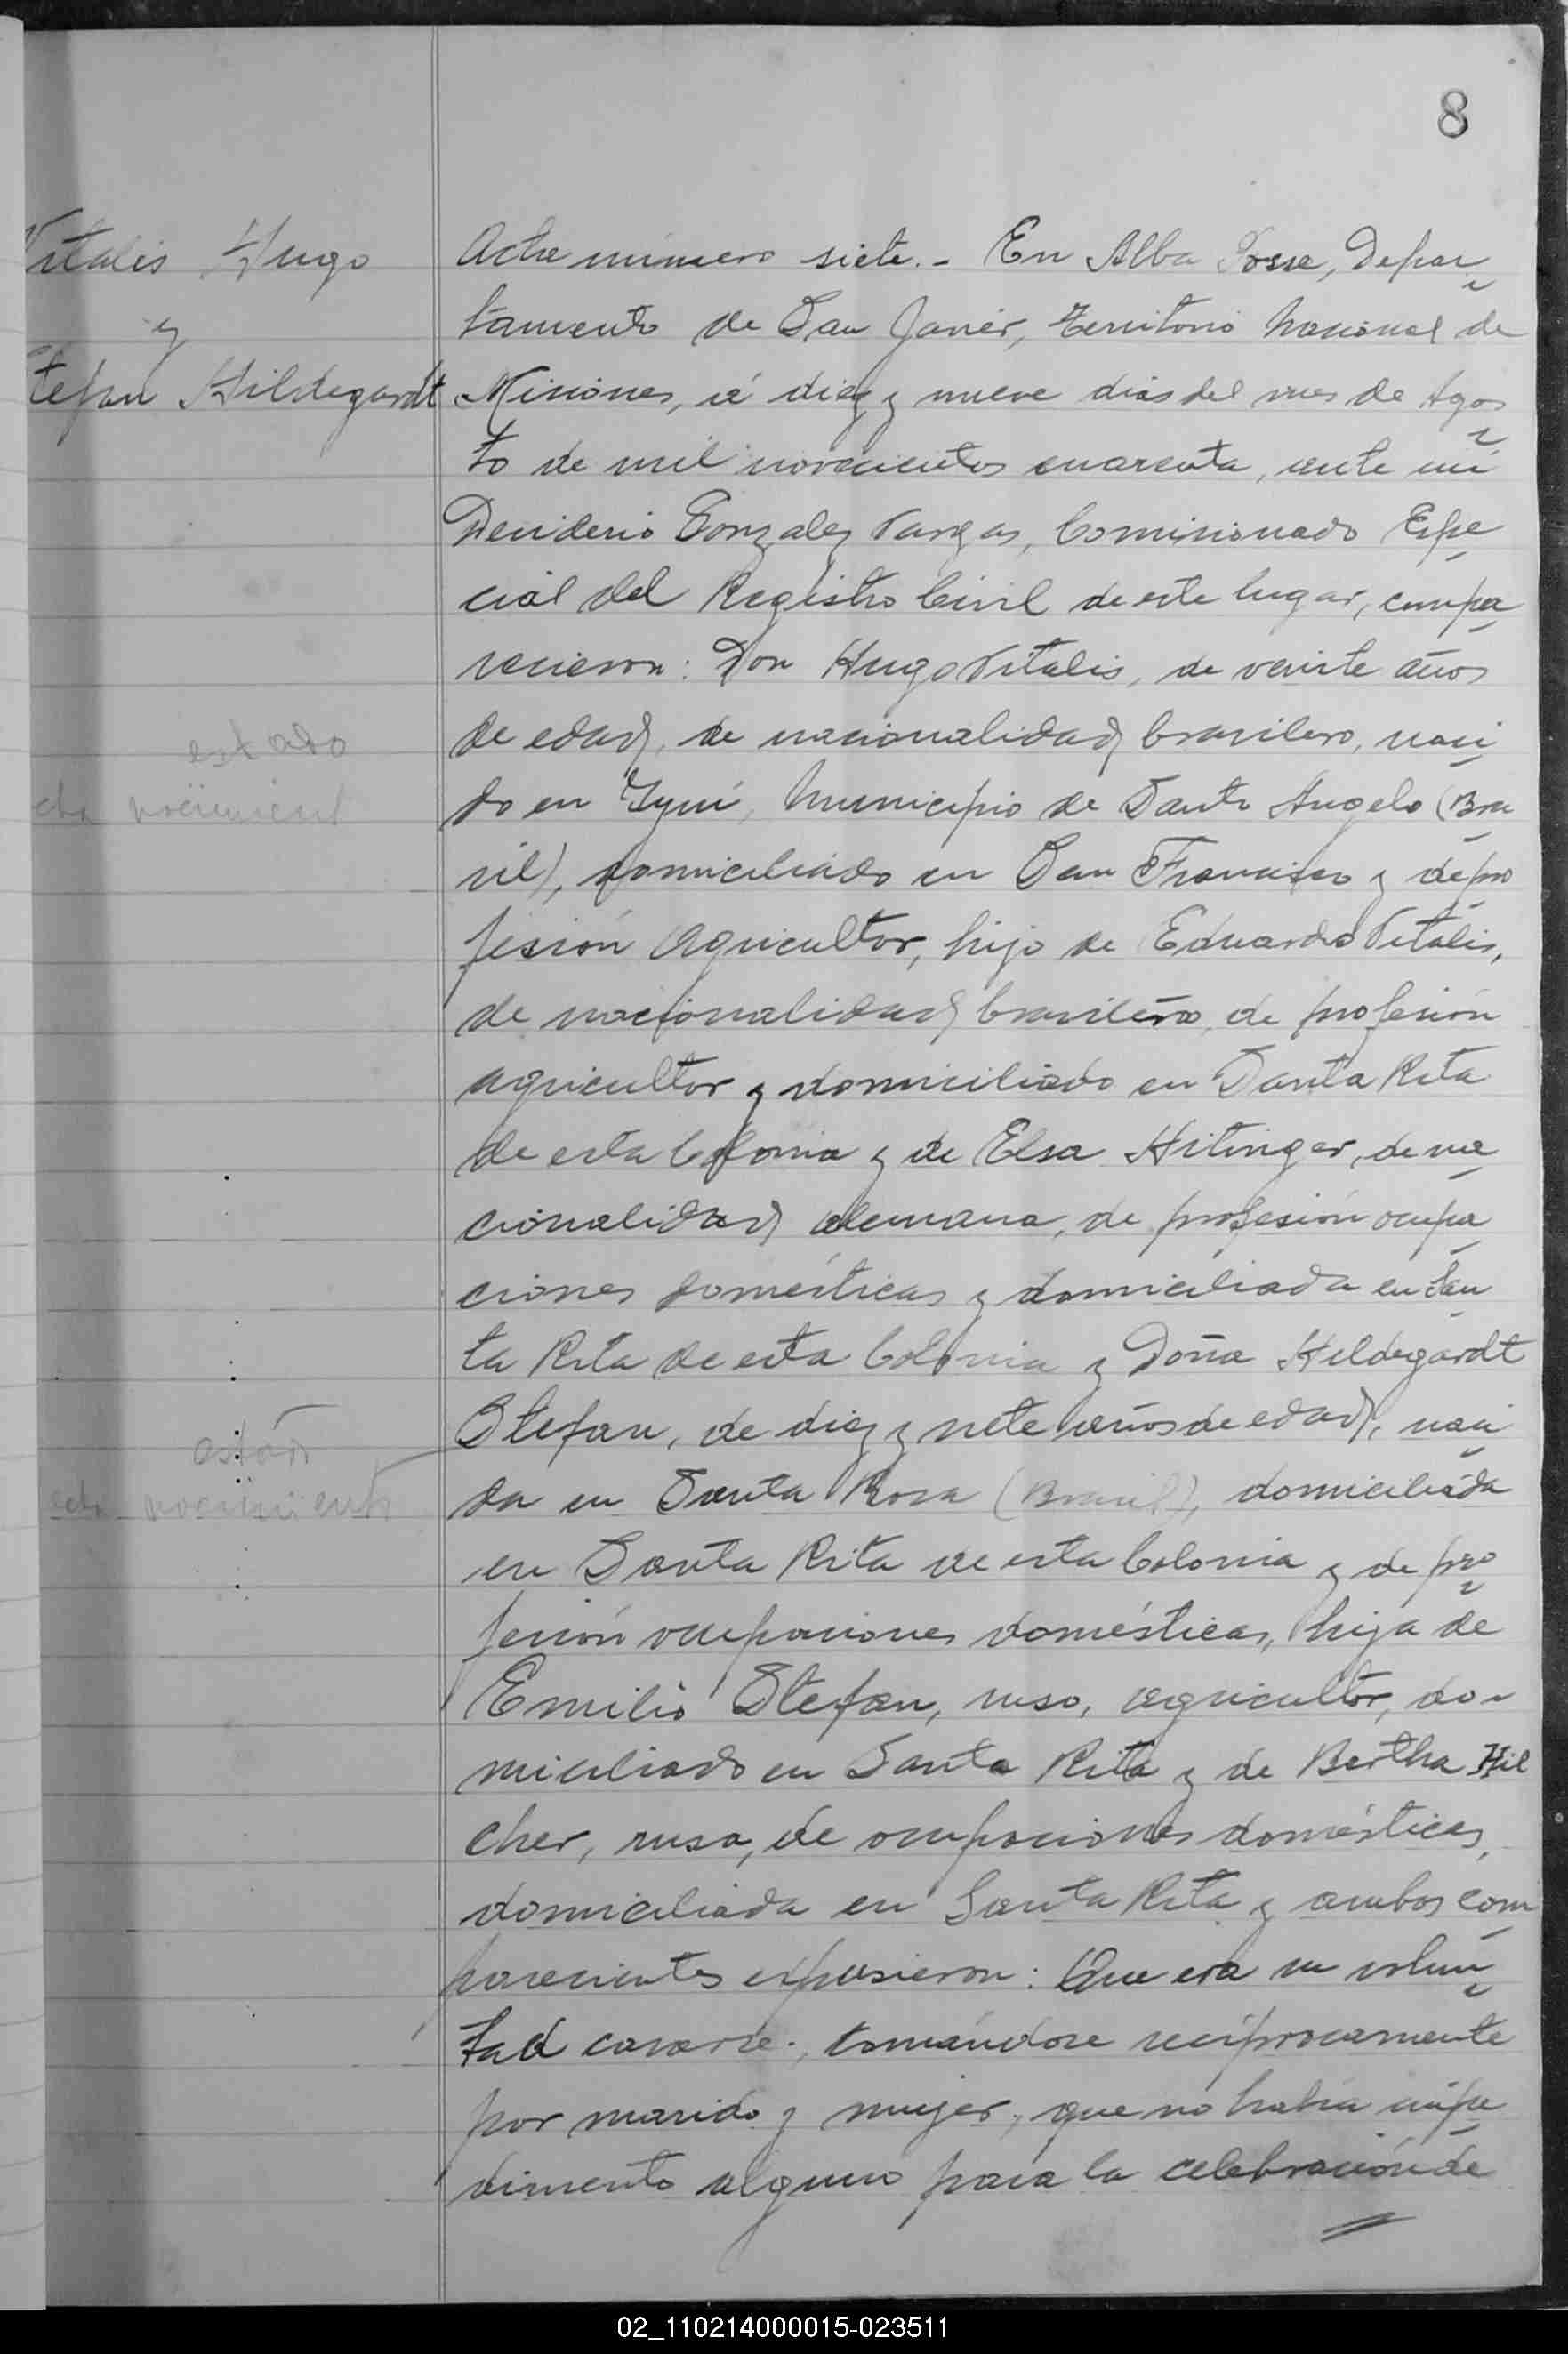 8
Vitalis Hugo
y
Stefan Hildegardt
Acta número siete.- En Alba Posse, Depar
tamento de San Javier, Territorio Nacional de
Misiones, á diez y nueve dias del mes de Agos
to de mil novecientos cuarenta, ante mi
Desiderio Gonzalez Vargas, Comisionado Espe
cial del Registro Civil de este lugar, compa
recieron: Don Hugo Vitalis, de veinte años
de edad, de nacionalidad brasilero, naci
do en Yjuí, Municipio de Santo Angelo (Bra
sil), domiciliado en San Francisco y de pro
fesión agricultor, hijo de Eduardo Vitalis,
de nacionalidad brasileño, de profesión
agricultor y domiciliado en Santa Rita
de esta Colonia y de Elsa Hitinger, de na
cionalidad alemana, de profesión ocupa
ciones domésticas y domiciliada en San
ta Rita de esta Colonia y Doña Hildegardt
Stefan, de diez y siete años de edad, naci
da en Santa Rosa (Brasil), domiciliada
en Santa Rita de esta Colonia y de pro
fesión ocupaciones domésticas, hija de
Emilio Stefan, ruso, agricultor, do-
miciliado en Santa Rita y de Bertha Hil
cher, rusa, de ocupaciones domésticas,
domiciliada en Santa Rita y ambos com
parecientes expusieron: Que era su volun
tad casarse, tomándose recíprocamente
por marido y mujer, que no habia impe
dimento alguno para la celebración de
estado
nacimient
nacimiento
02_110214000015-023511